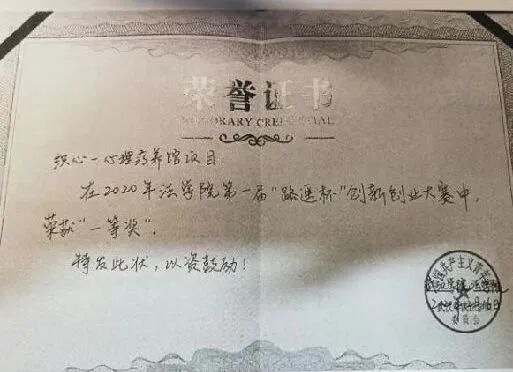 荣誉证书
HONORARY CREDENTIAL
织心一心理疗养馆项目
在2020年法学院第一届“路选杯”创新创业大赛中，
荣获“一等奖”。
特发此状，以资鼓励！
委员会